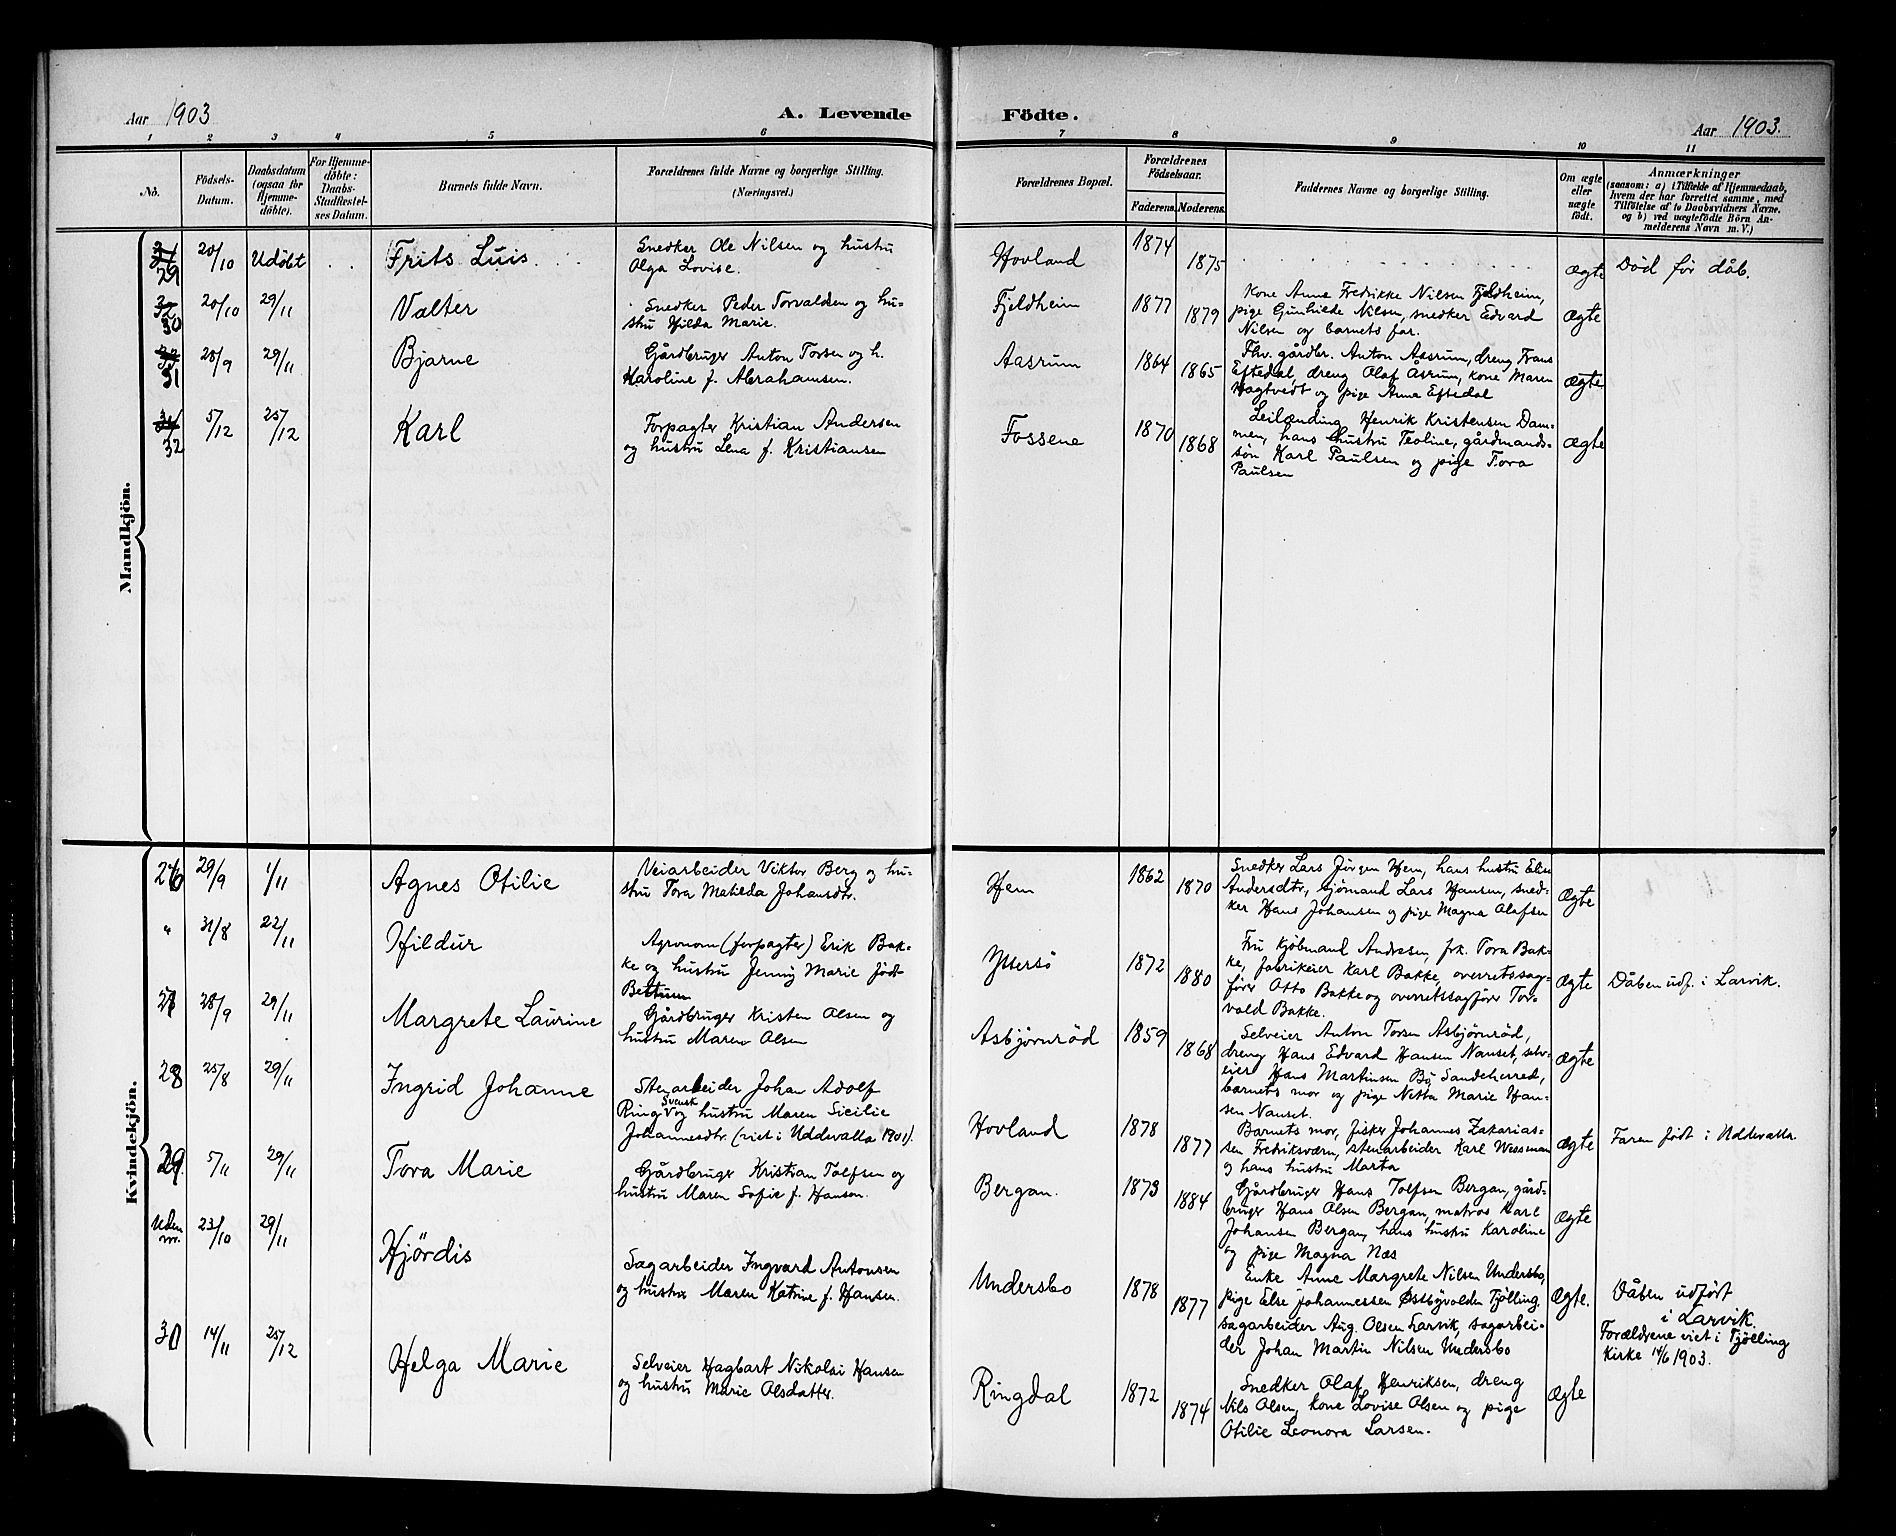 Aar 1903
A. Levende
Födte.
Aar 1903.
1 2 3 4 5 6 7 8 9 10 11
No.
Födsels-
Datum.
Daabsdatum
(ogsaa for
Hjemme-
døbte).
For Hjemme-
døbte:
Daabs-
Stadfæstel-
ses Datum.
Barnets fulde Navn.
Forældrenes fulde Navne og borgerlige Stilling.
(Næringsvei.)
Forældrenes Bopæl.
Forældrenes
Födselsaar.
Faderens. Moderens.
Faddernes Navne og borgerlige Stilling.
Om ægte
eller
uægte
født.
Anmærkninger
(saasom: a) i Tilfælde af Hjemmedaab,
hvem der har forrettet samme, med
Tilføielse af to Daabsvidners Navne.
og b) ved uægtefødte Börn An-
melderens Navn m. V.)
Mandkjön.
31
29
20/10 Udöbt
Frits Luis
Snedker Ole Nilsen og hustru
Olga Lovise.
Hovland
1874
1875
Ægte
Död för dåb.
32
30
20/10 29/11
Valter
Snedker Peder Torvaldsen og hu-
stru Hilda Marie.
Fjeldheim
1877
1879
Kone Anne Fredrikke Nilsen Fjeldheim,
pige Gunhilde Nilsen, snedker Edvard
Nilsen og barnets far.
Ægte
33
31
28/9 29/11
Bjarne
Gårdbruger Anton Torsen og h.
Karoline f. Abrahamsen.
Aasrum
1864
1865
Fhv. gårdbr. Anton Aasrum, dreng Frans
Eftedal, dreng Olaf Åsrum, kone Maren
Hagtvedt og pige Anna Eftedal
Ægte
34
32
5/12 25/12
Karl
Forpagter Kristian Andersen
og hustru Lena f. Kristiansen
Fossene
1870
1868
Leilænding Henrik Kristensen Dam-
men, hans hustru Teoline, gårdmands-
søn Karl Paulsen og pige Tora
Paulsen
Ægte
Kvindekjön.
26
29/9 1/11
Agnes Otilie
Veiarbeider Viktor Berg og hu-
stru Tora Matilda Johansdtr.
Hem
1862
1870
Snedker Lars Jørgen Hem, hans hustru Elise
Andersdtr, sjömand Lars Hansen, sned-
ker Hans Johansen og pige Magna Olafsen
Ægte
"
31/8 22/11
Hildur
Agronom (forpagter) Erik Bak-
ke og hustru Jenny Marie född
Bettum
Yttersö
1872
1880
Fru kjöbmand Andresen, frk. Tora Bak-
ke, fabrikeier Karl Bakke, overretssag-
fører Otto Bakke og overretssagfører Tor-
vald Bakke.
Ægte
Dåben udf. i Larvik.
27
28/9 29/11
Margrete Laurine
Gårdbruger Kristen Olsen og
hustru Maren Olsen
Asbjörnröd
1859
1868
Selveier Anton Torsen Asbjörnröd,
dreng Hans Edvard Hansen Nanset, selv-
eier Hans Martinsen Bö Sandeherred,
barnets mor og pige Netta Marie Han-
sen Nanset.
Ægte
28
25/8 29/11
Ingrid Johanne
Stenarbeider Johan Adolf
Ring svensk og hustru Maren Sicilie
Johannesdtr. (viet i Uddevalla 1901).
Hovland
1878
1877
Barnets mor, fisker Johannes Zakarias-
sen Fredriksværn, stenarbeider Karl Wessman
og hans hustru Marta
Ægte
Faren född i Uddevalla
29.
5/11 29/11
Tora Marie
Gårdbruger Kristian Tolfsen og
hustru Maren Sofie f. Hansen.
Bergan.
1873
1884
Gårdbruger Hans Tolfsen Bergan, gård-
bruger Hans Olsen Bergan, matros Karl
Johansen Bergan, hans hustru Karoline
og pige Magna Næs
Ægte
Uden
nr.
23/10 29/11
Hjördis
Sagarbeider Ingvard Antonsen
og hustru Maren Katrine f. Hansen.
Undersbo
1878
1877
Enke Anne Margrete Nilsen Undersbo,
pige Else Johannessen Østbyvolden Tjölling,
sagarbeider Aug. Olsen Larvik, sagarbei-
der Johan Martin Nilsen Undersbo
Ægte.
Dåben udfört
i Larvik.
Forældrene viet i Tjölling
kirke 14/6 1903.
30
14/11 25/12
Helga Marie
Selveier Hagbart Nikolai Hansen
og hustru Marie Olsdatter.
Ringdal
1872
1874
Snedker Olaf Henriksen, dreng
Nils Olsen, kone Lovise Olsen og pige
Otilie Leonora Larsen.
Ægte